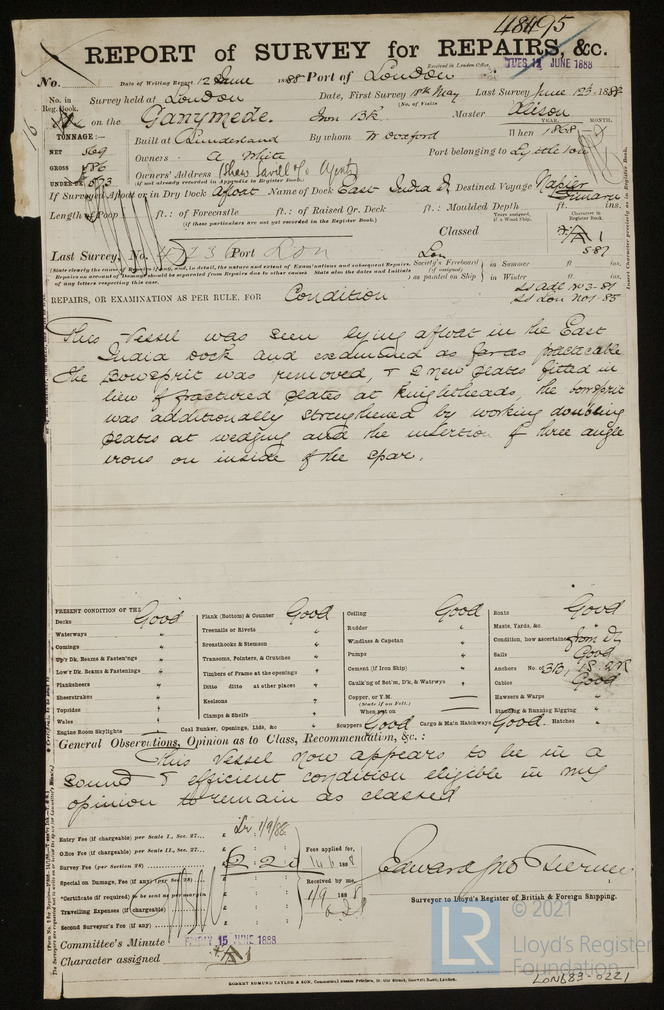 48495
REPORT of SURVEY for REPAIRS, &c.
Received in London Office, TUES. 12 JUNE 1888
No. Date of Writing Report 12 June 1888 Port of London
No. in Reg. Book. Survey held at London Date, First Survey 18th May Last Survey June 12th 1888
(No. of Visits
on the Ganymede. Iron Bk. Master
TONNAGE:— Built at Sunderland By whom W Doxford When 1868
YEAR. MONTH.
NET 569 Owners A. White Port belonging to Lyttleton
GROSS 586
Owners' Address (Shaw Savill & Co Agents
(if not already recorded in Appendix to Register Book.)
UNDER DK. 553
If Surveyed Afloat or in Dry Dock Afloat Name of Dock East India Dk Destined Voyage Napier
Length of Poop ft.: of Forecastle ft.: of Raised Qr. Deck ft.: Moulded Depth ft. ins.
(if these particulars are not yet recorded in the Register Book.)
Classed
Character in Register Book.
A1
5.87
Last Survey, No. Port Lon
Lon
(State clearly the cause of Repairs if any, and, in detail, the nature and extent of Examinations and subsequent Repairs.
Repairs on account of Damage should be separated from Repairs due to other causes. State also the dates and Initials
of any letters respecting this case.
Society's Freeboard (if assigned) as painted on Ship in Summer ft ins.
in Winter ft. ins.
SS Adl No 3-81
SS Lon No 1-85
REPAIRS, OR EXAMINATION AS PER RULE, FOR Condition
This Vessel was seen lying afloat in the East
India Dock and examined as far as practicable
The Bowsprit was removed, & 2 new plates fitted in
lieu of fractured plates at Knightheads, the bowsprit
was additionally strengthened by working doubling
plates at wedging and the insertion of three angle
irons on inside of the spar.
PRESENT CONDITION OF THE
Decks Good
Waterways "
Comings "
Up'r Dk. Beams & Fastenings "
Low'r Dk. Beams & Fastenings "
Planksheers "
Sheerstrakes "
Topsides "
Wales "
Engine Room Skylights
Plank (Bottom) & Counter Good
Treenails or Rivets "
Breasthooks & Stemson "
Transoms, Pointers, & Crutches "
Timbers of Frame at the openings "
Ditto ditto at other places "
Keelsons "
Clamps & Shelfs "
Coal Bunker, Openings, Lids, &c
Ceiling Good
Rudder "
Windlass & Capstan "
Pumps "
Cement (if Iron Ship) "
Caulk'ng of Bot'm, D'k, & Watrwys "
Copper, or Y.M.
(State if on Felt.)
When put on
Scuppers Good Cargo & Main Hatchways Good. Hatches "
Boats Good
Masts, Yards, &c. "
Condition, how ascertained from Dk
Sails Good
Anchors No. of 3B, 1S. 2K
Cables Good
Hawsers & Warps "
Standing & Running Rigging "
General Observations, Opinion as to Class, Recommendation, &c.:
This Vessel now appears to be in a
sound & efficient condition eligible in my
opinion to remain as classed
Entry Fee (if chargeable) per Scale I., Sec. 27... £
Office Fee (if chargeable) per Scale II., Sec. 27... £
Survey Fee (per Section 28) £ 2 : 2 : 0
Special on Damage, Fee (if any) (per Sec. 28) £
*Certificate (if required) to be sent as per margin £
Travelling Expenses (if chargeable) £
Second Surveyor's Fee (if any) £
Lr. 1/9/88
Fees applied for, 14 6 1888
Received by me, 1/9 1888
Surveyor to Lloyd's Register of British & Foreign Shipping.
Committee's Minute FRIDAY 15 JUNE 1888
Character assigned A1
ROBERT EDMUND TAYLOR & SON, Commercial Steam Printers, 19, Old Street, Goswell Road, London.
LR
© 2021
Lloyd's Register
Foundation
LON683-0221